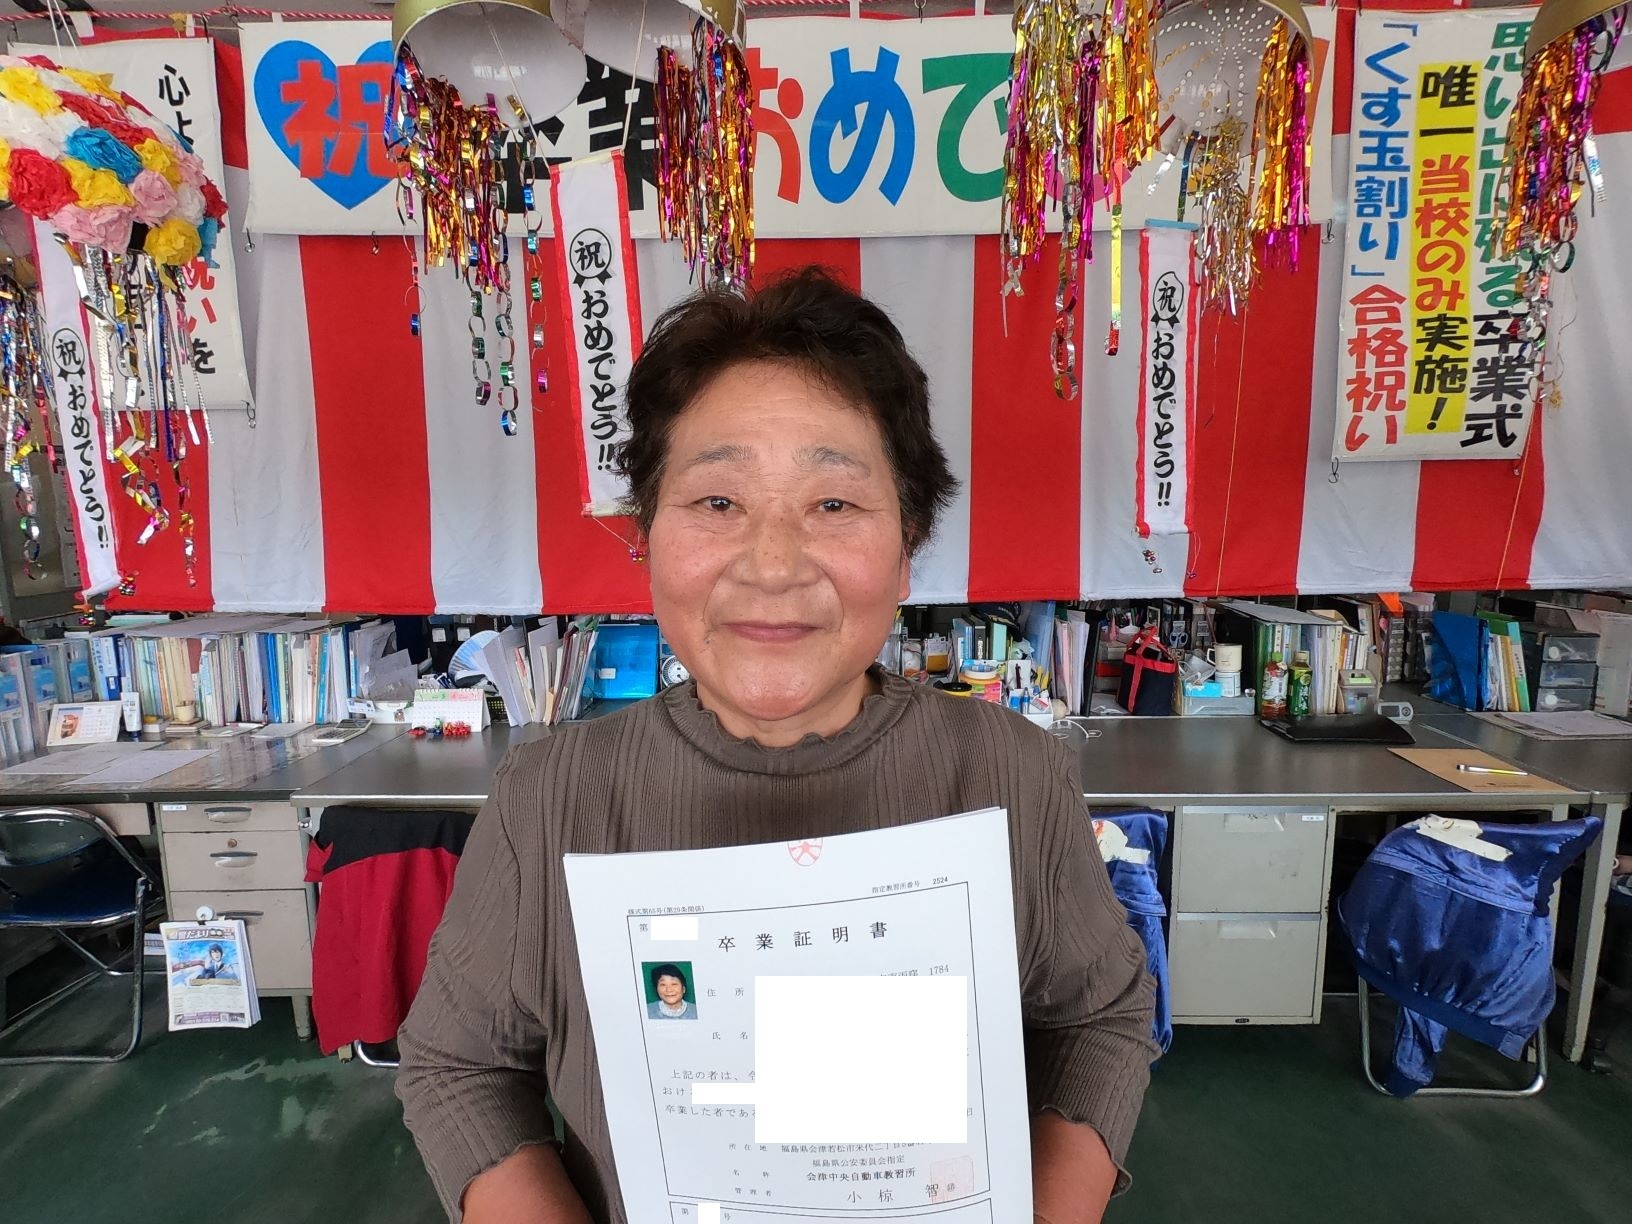 祝 卒業おめで
思い出に残る卒業式
唯一当校のみ実施！
「くす玉割り」合格祝い
心よ
祝いを
祝
おめでとう!!
祝
おめでとう!!
祝
おめでとう!!
指定教習所番号 2524
様式第65号(第29条関係)
第
卒業証明書
1784
住所
氏名
上記の者は、
おけ
卒業した者であ
日
所在地 福島県会津若松市米代二丁目
福島県公安委員会指定
名称 会津中央自動車教習所
管理者 小椋 智
第 号